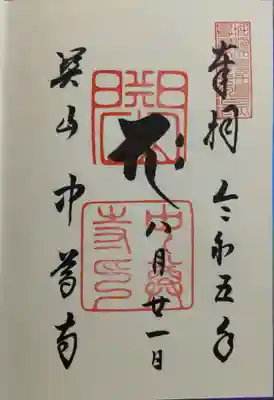 奉拝 令和五年
八月廿一日
関山中尊寺
中尊
寺印